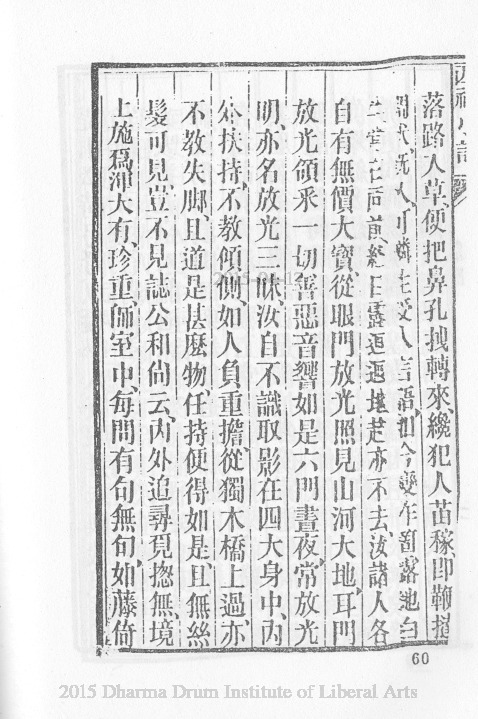 落路入草便把鼻孔拽轉來、纔犯人苗稼即鞭撻
調伏、既久、可憐生受人言語、如今變作箇露地白
牛常在面前終日露迥迥地趁亦不去、汝諸人各
自有無價大寶、從眼門放光照見山河大地、耳門
放光領采一切善惡音響如是六門晝夜、常放光
明、亦名放光三昧、汝自不識取影在四大身中、內
外扶持、不教傾側、如人負重擔、從獨木橋上過、亦
不教失脚、且道是甚麽物、任持便得如是、且無絲
髮可見、豈不見誌公和尚云、內外追尋覓揔無境
上施爲渾大有、珍重、師室中、每問有句無句、如藤倚
60
2015 Dharma Drum Institute of Liberal Arts